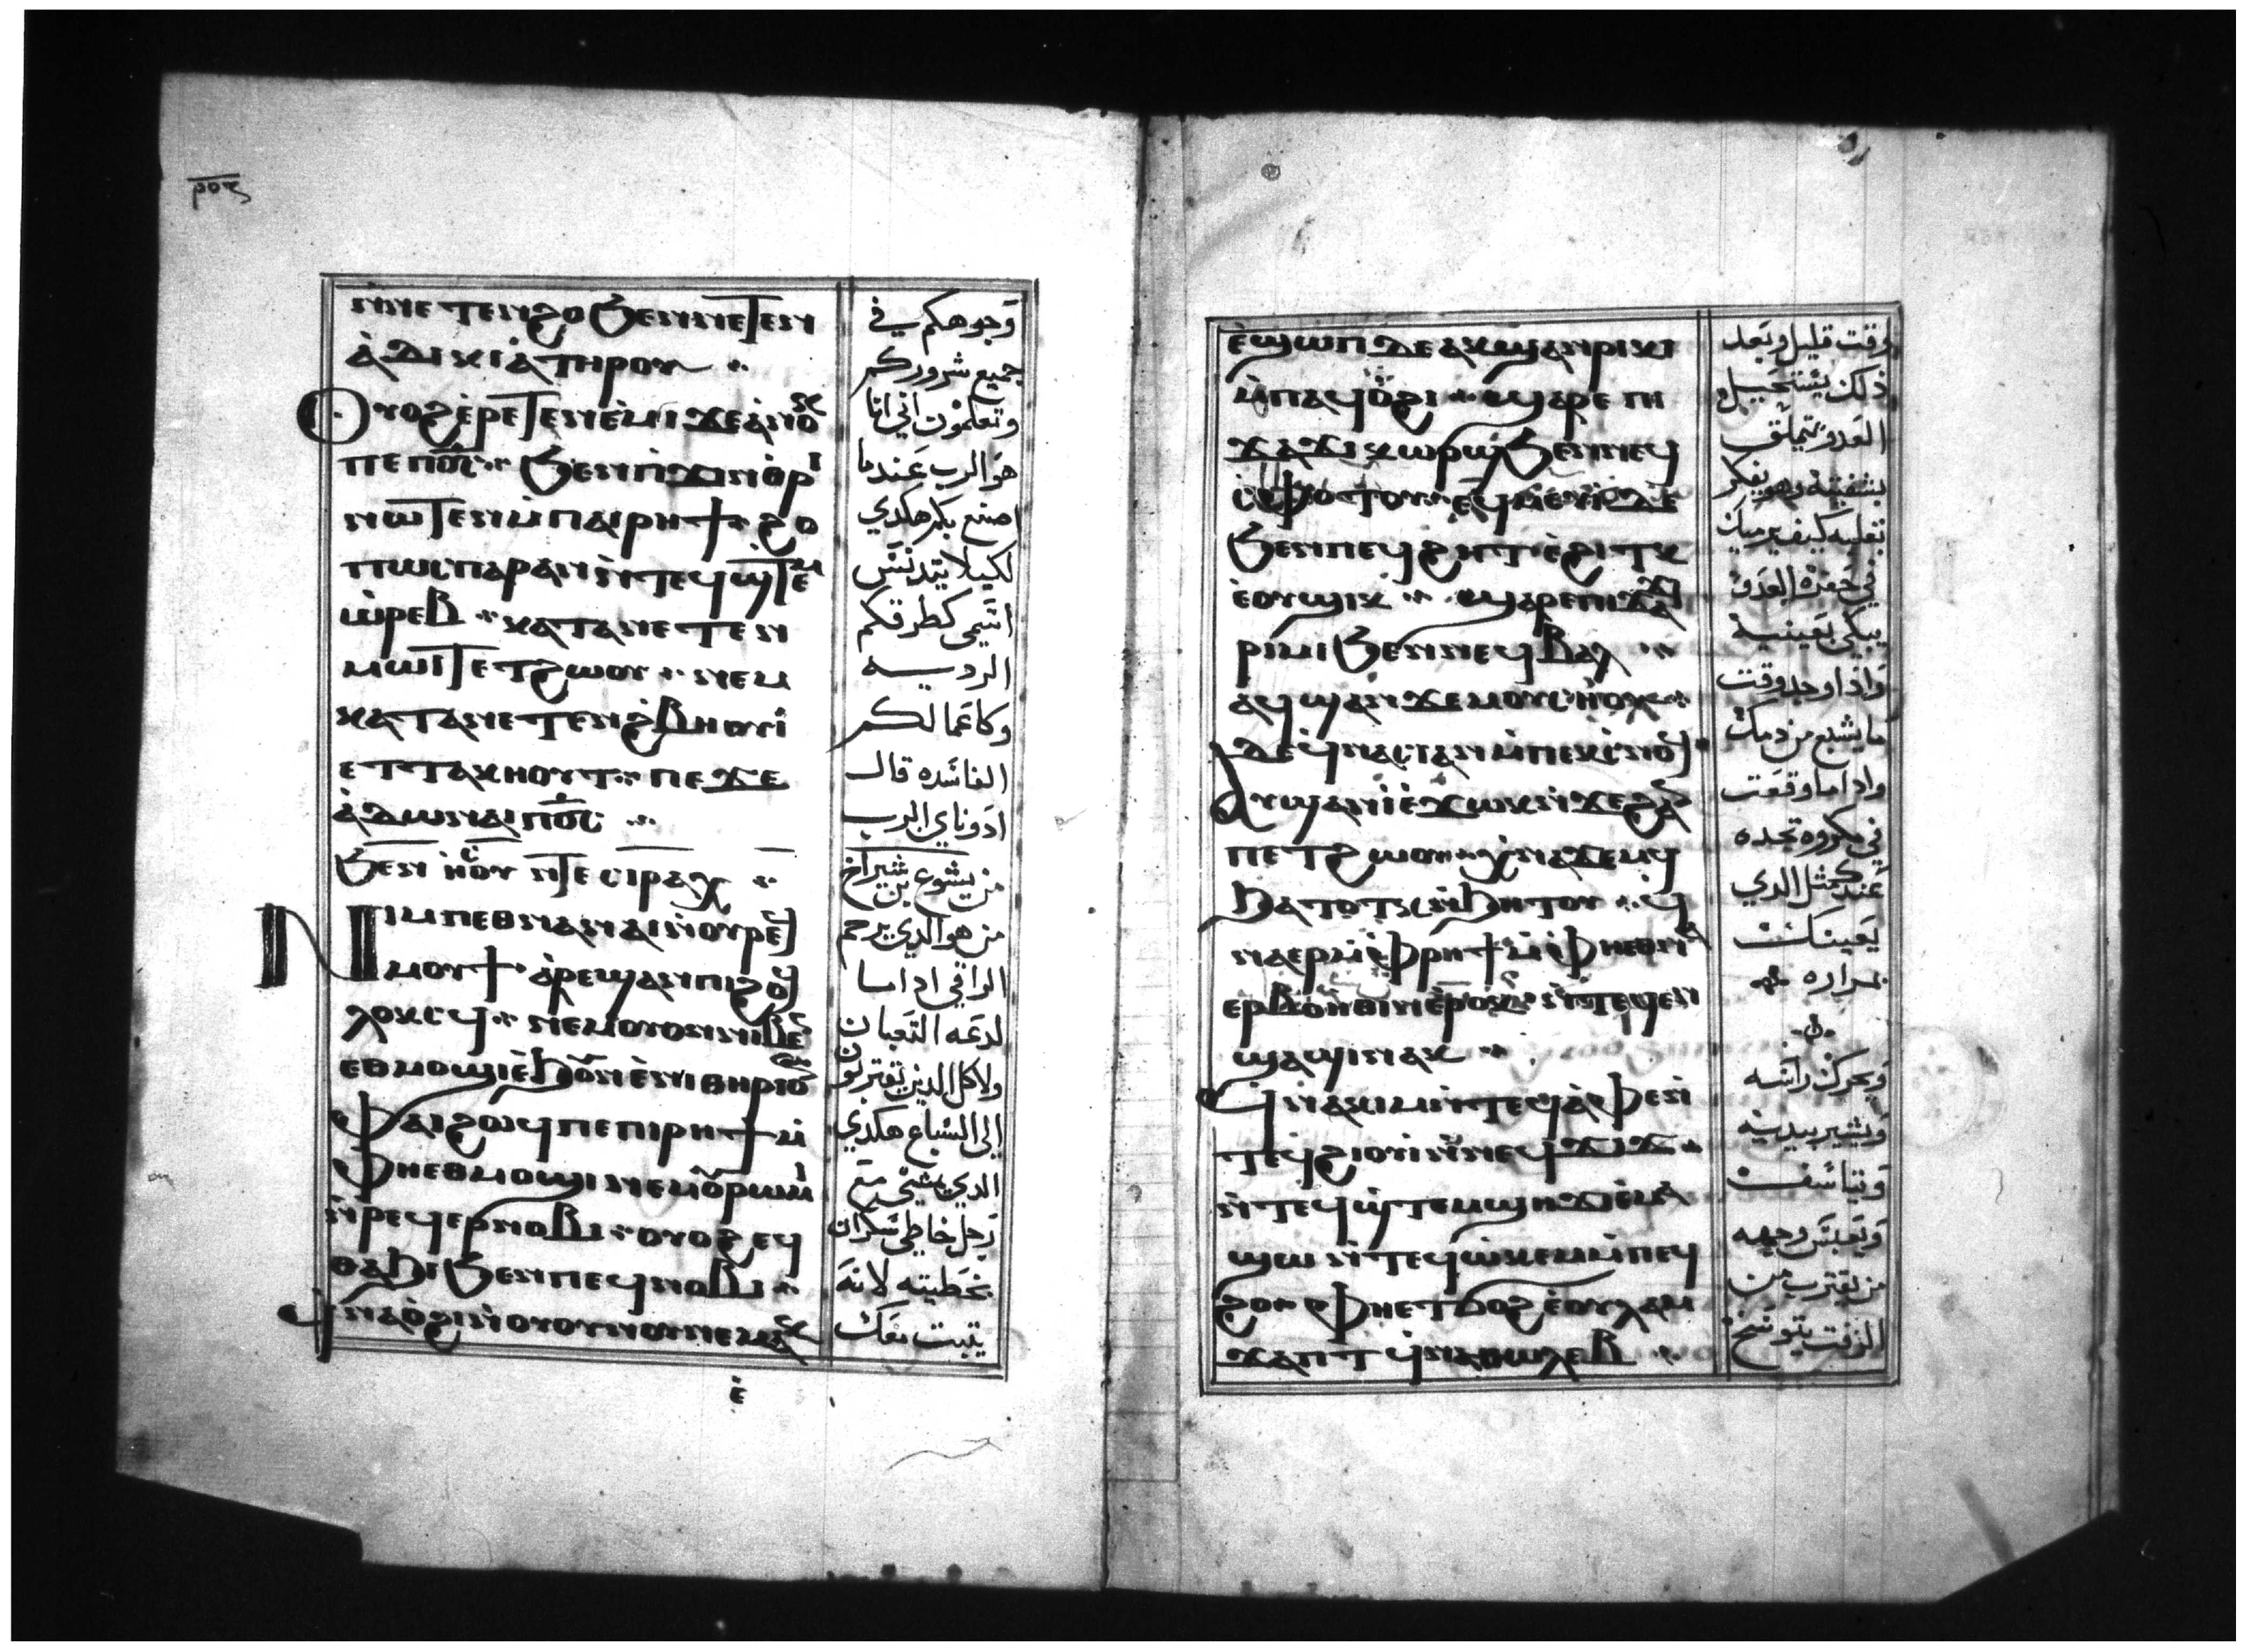 ⲣⲟⲋ
ⲛⲛⲉⲧⲉⲛϩⲟ ϧⲉⲛⲛⲉⲧⲉⲛ
ⲁ̇ⲇⲓⲕⲓⲁ̇ ⲧⲏⲣⲟⲩ
ⲟⲩⲟϩ ⲉ̇ⲣⲉⲧⲉⲛⲉ̇ⲙⲓ ϫⲉ ⲁ̇ⲛⲟⲕ
ⲡⲉ ⲡϭⲟⲓⲥ ϧⲉⲛⲡϫⲓⲛⲑⲣⲓ
ⲛⲱⲧⲉⲛ ⲙ̇ⲡⲁⲓⲣⲏϯ ϩⲟ
ⲡⲱⲥ ⲡⲁⲣⲁⲛ ⲛ̇ⲧⲉϥϣ̇ⲧⲉⲙ
ⲱ̇ⲣⲉⲃ ⲕⲁⲧⲁ ⲛⲉⲧⲉⲛ
ⲙⲱⲓⲧ ⲉⲧϩⲱⲟⲩ ⲛⲉⲙ
ⲕⲁⲧⲁ ⲛⲉⲧⲉⲛϩⲃⲏⲟⲩⲓ̇
ⲉⲧⲧⲁⲕⲏⲟⲩⲧ ⲡⲉϫⲉ
ⲁ̇ⲇⲱⲛⲁⲓ ⲡϭⲟⲓⲥ
ϧⲉⲛ ⲓⲏⲥⲟⲩ ⲛⲧⲉ ⲥⲓⲣⲁⲭ
ⲛⲓⲙ ⲡⲉⲑⲛⲁⲛⲁⲓ ⲛ̇ⲟⲩⲣⲉϥ
ⲙⲟⲩϯ ⲁ̇ⲣⲉϣⲁⲛⲡⲓϩⲟϥ
ⲗⲟⲕⲥϥ ⲛⲉⲙ ⲟⲩⲟⲛ ⲛⲓⲃⲉⲛ
ⲉⲑⲙⲟϣⲓ ⲉ̇ϧⲟⲩⲛ ⲉ̇ⲛⲓⲑⲏⲣⲓⲟⲛ
ⲫⲁⲓ ϩⲱϥ ⲡⲉ ⲡⲓⲣⲏϯ ⲙ̇
ⲫⲏⲉⲑⲙⲟϣⲓ ⲛⲉⲙ ⲟⲩⲣⲱⲙⲓ
ⲛ̇ⲣⲉϥⲉⲣⲛⲟⲃⲓ ⲟⲩⲟϩ ⲉϥ
ⲑⲁϧⲓ ϧⲉⲛⲡⲉϥⲛⲟⲃⲓ
ϥⲛⲁⲟ̇ϩⲓ ⲛ̇ⲟⲩⲟⲩⲛⲟⲩ ⲛⲉⲙⲁⲕ
ⲉ̇
وجوهكم في
جميع شروركم
وتعلمون اني انا
هو الرب عندما
اصنع بكم هكدي
لكيلا يتدنس
اسمي كطرقكم
الرديه
وكاعمالكم
الفاسده قال
ادوناي الرب
من يشوع بن شيراخ
من هو الدي يرحم
الراقي ادا ما
لدغه التعبان
ولا كل الدين يقتربون
الى السباع هكدي
الدي يمشي مع
رجل خاطي سكران
بخطيته لانه
يتبت معك
ⲉ̇ϣⲱⲡ ⲇⲉ ⲁⲕϣⲁⲛⲣⲓⲕⲓ
ⲙ̇ⲡⲁϥⲟ̇ϩⲓ ϣⲁⲣⲉ ⲡⲓ
ϫⲁϫⲓ ⲭⲱⲣϣ ϧⲉⲛⲛⲉϥ
ⲥ̇ⲫⲟⲧⲟⲩ ⲉϥⲙⲉⲩⲓ ⲇⲉ
ϧⲉⲛⲡⲉϥϩⲏⲧ ⲉ̇ϩⲓⲧⲕ
ⲉ̇ⲟⲩϣⲓⲕ ϣⲁⲣⲉ ⲡⲓϫⲁϫⲓ
ⲣⲓⲙⲓ ϧⲉⲛⲛⲉϥⲃⲁⲗ
ⲁϥϣⲁⲛϫⲉⲙ ⲟⲩⲥⲏⲟⲩ
ⲇⲉ ϥⲛⲁⲥⲓ ⲁⲛ ⲙ̇ⲡⲉⲕⲥⲛⲟϥ
ⲁⲩϣⲁⲛⲓ̇ ⲉ̇ϫⲱⲕ ⲛ̇ϫⲉ ϩⲁⲛ
ⲡⲉⲧϩⲱⲟⲩ ⲭⲛⲁϫⲉⲙϥ
ϧⲁⲧⲟⲧⲕ ⲛ̇ϧⲏⲧⲟⲩ ϥ
ⲛⲁⲉⲣ ⲙ̇ⲫⲣⲏϯ ⲙ̇ⲫⲏⲉⲑⲛⲁ
ⲉⲣⲃⲟⲏ̇ⲑⲓⲛ ⲉ̇ⲣⲟⲕ ⲛ̇ⲧⲉϥⲉⲛ
ϣⲁϣⲓ ⲛⲁⲕ
ϥⲛⲁⲕⲓⲙ ⲛ̇ⲧⲉϥⲁ̇ⲫⲉ ⲛ̇
ⲧⲉϥϩⲓⲟⲩⲓ ⲛ̇ⲛⲉϥϫⲓϫ
ⲛ̇ⲧⲉϥϣ̇ⲧⲉⲙϣⲏ ϫⲉⲙⲁ
ϣⲱ ⲛ̇ⲧⲉϥⲱ̇ⲕⲉⲙ ⲙ̇ⲡⲉϥ
ϩⲟ ⲫⲏⲉⲧϭⲟϩ ⲉ̇ⲟⲩⲗⲁⲙ
ϫⲁⲡⲧ ϥⲛⲁⲑⲱⲗⲉⲃ
لوقت قليل وبعد
ذلك يستحيل
العدو يتملق
بشفتيه وهو يفكر
بقلبه كيف يرميك
في حفره العدو
يبكي بعينيه
واذا وجد وقت
ما يشبع من دمك
واد اما وقعت
في مكروه تجده
عندك مثل الدي
يعينك
بمراره
ويحرك راسه
ويشير بيديه
ويتاسف
ويعبس وجهه
من يقترب من
الزفت يتوسخ